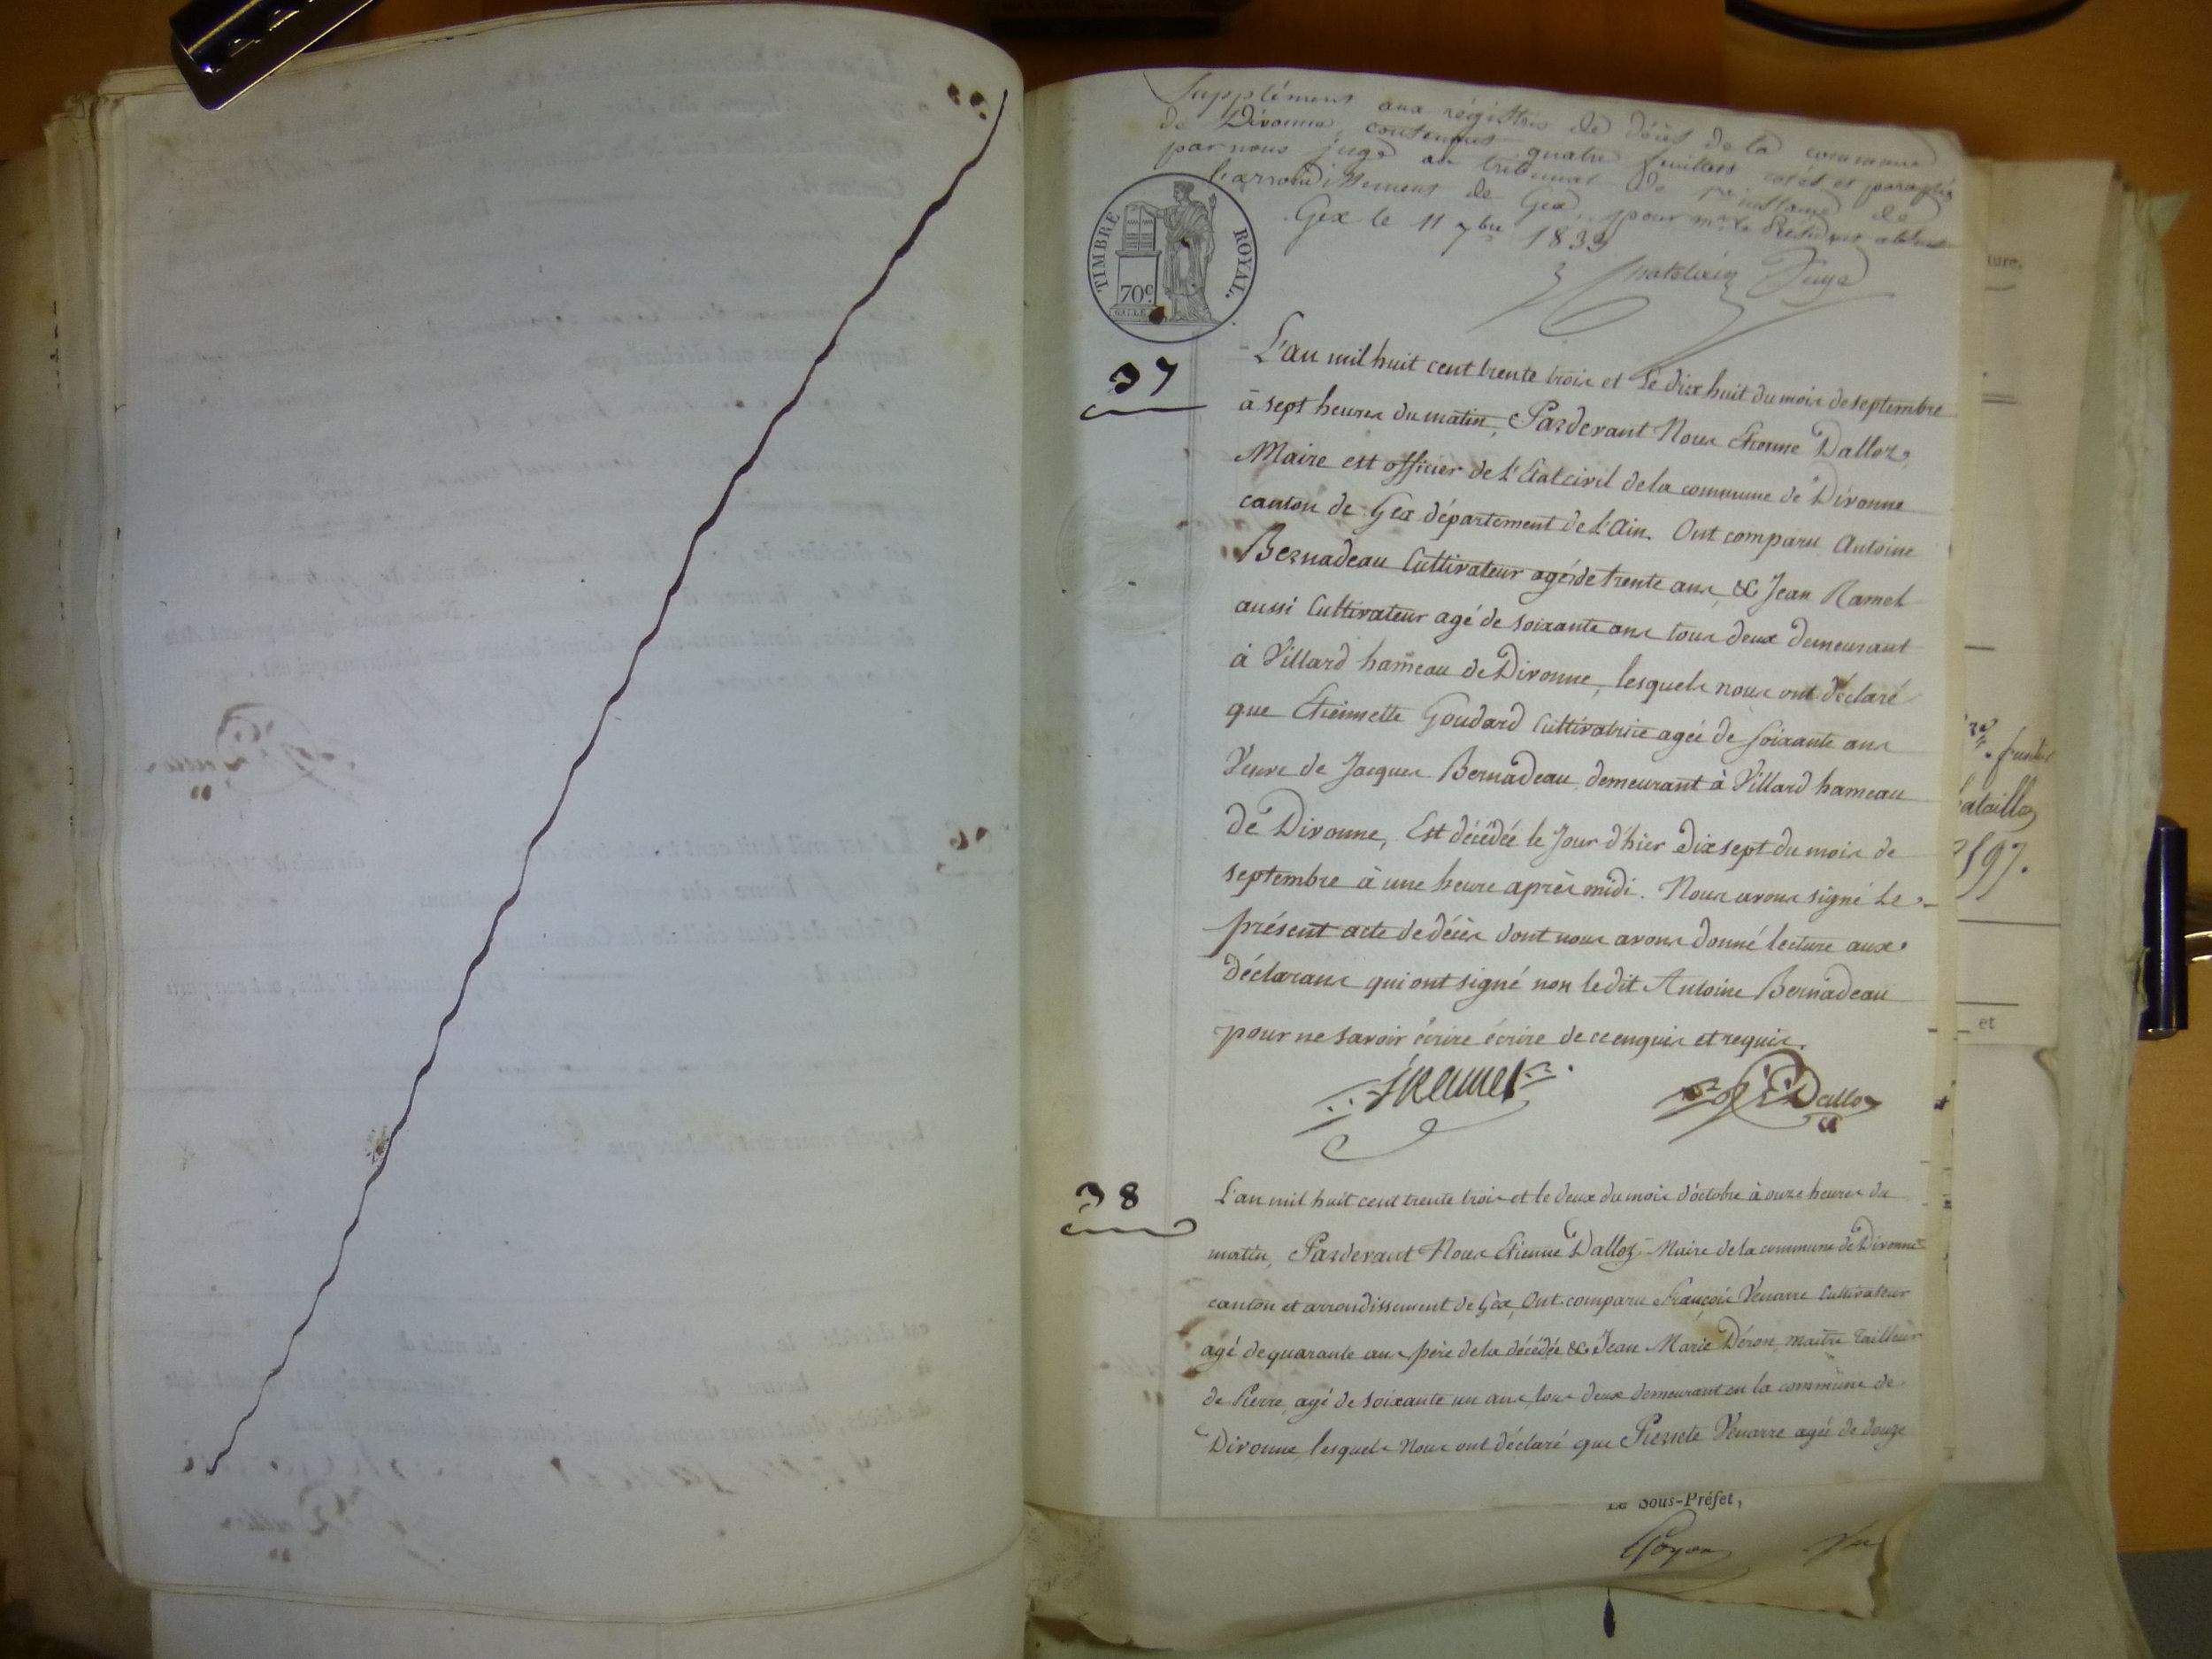 Supplément aux régistres de décès de la commune
de Divonne, contenant quatre feuillets cotés et paraphés
par nous juge au tribunal de 1ère instance de
l'arrondissement de Gex, pour Mr le Président absent
Gex le 11 7bre 1833
Juge
TIMBRE ROYAL.
70c
37
L'an mil huit cent trente trois et le dix huit du mois de septembre
à sept heures du matin, Pardevant Nous Etienne Dalloz,
Maire est officier de l'Etat civil de la commune de Divonne
canton de Gex département de l'Ain. Ont comparu Antoine
Bernadeau Cultivateur agé de trente ans, & Jean Ramel
aussi Cultivateur agé de soixante ans tous deux demeurant
à Villard hameau de Divonne, lesquels nous ont déclaré
que Etiennette Goudard Cultivatrice agée de soixante ans
Veuve de Jacques Bernadeau, demeurant à Villard hameau
de Divonne, Est décédée le Jour d'hier dix sept du mois de
septembre à une heure après midi. Nous avons signé Le
présent acte de décès dont nous avons donné lecture aux
déclarans qui ont signé non le dit Antoine Bernadeau
pour ne savoir écrire écrire de ce enquis et requis.
JRamel
Dalloz
38
L'an mil huit cent trente trois et le deux du mois d'octobre à onze heures du
matin, Pardevant Nous Etienne Dalloz Maire de la commune de Divonne
canton et arrondissement de Gex, Ont comparu François Venarre Cultivateur
agé de quarante ans père de la décédée & Jean Marie Déron maitre tailleur
de Pierre, agé de soixante un ans, tous deux demeurant en la commune de
Divonne, lesquels Nous ont déclaré que Pierrete Venarre agée de douze
Le Sous-Préfet,
ture,
597.
et